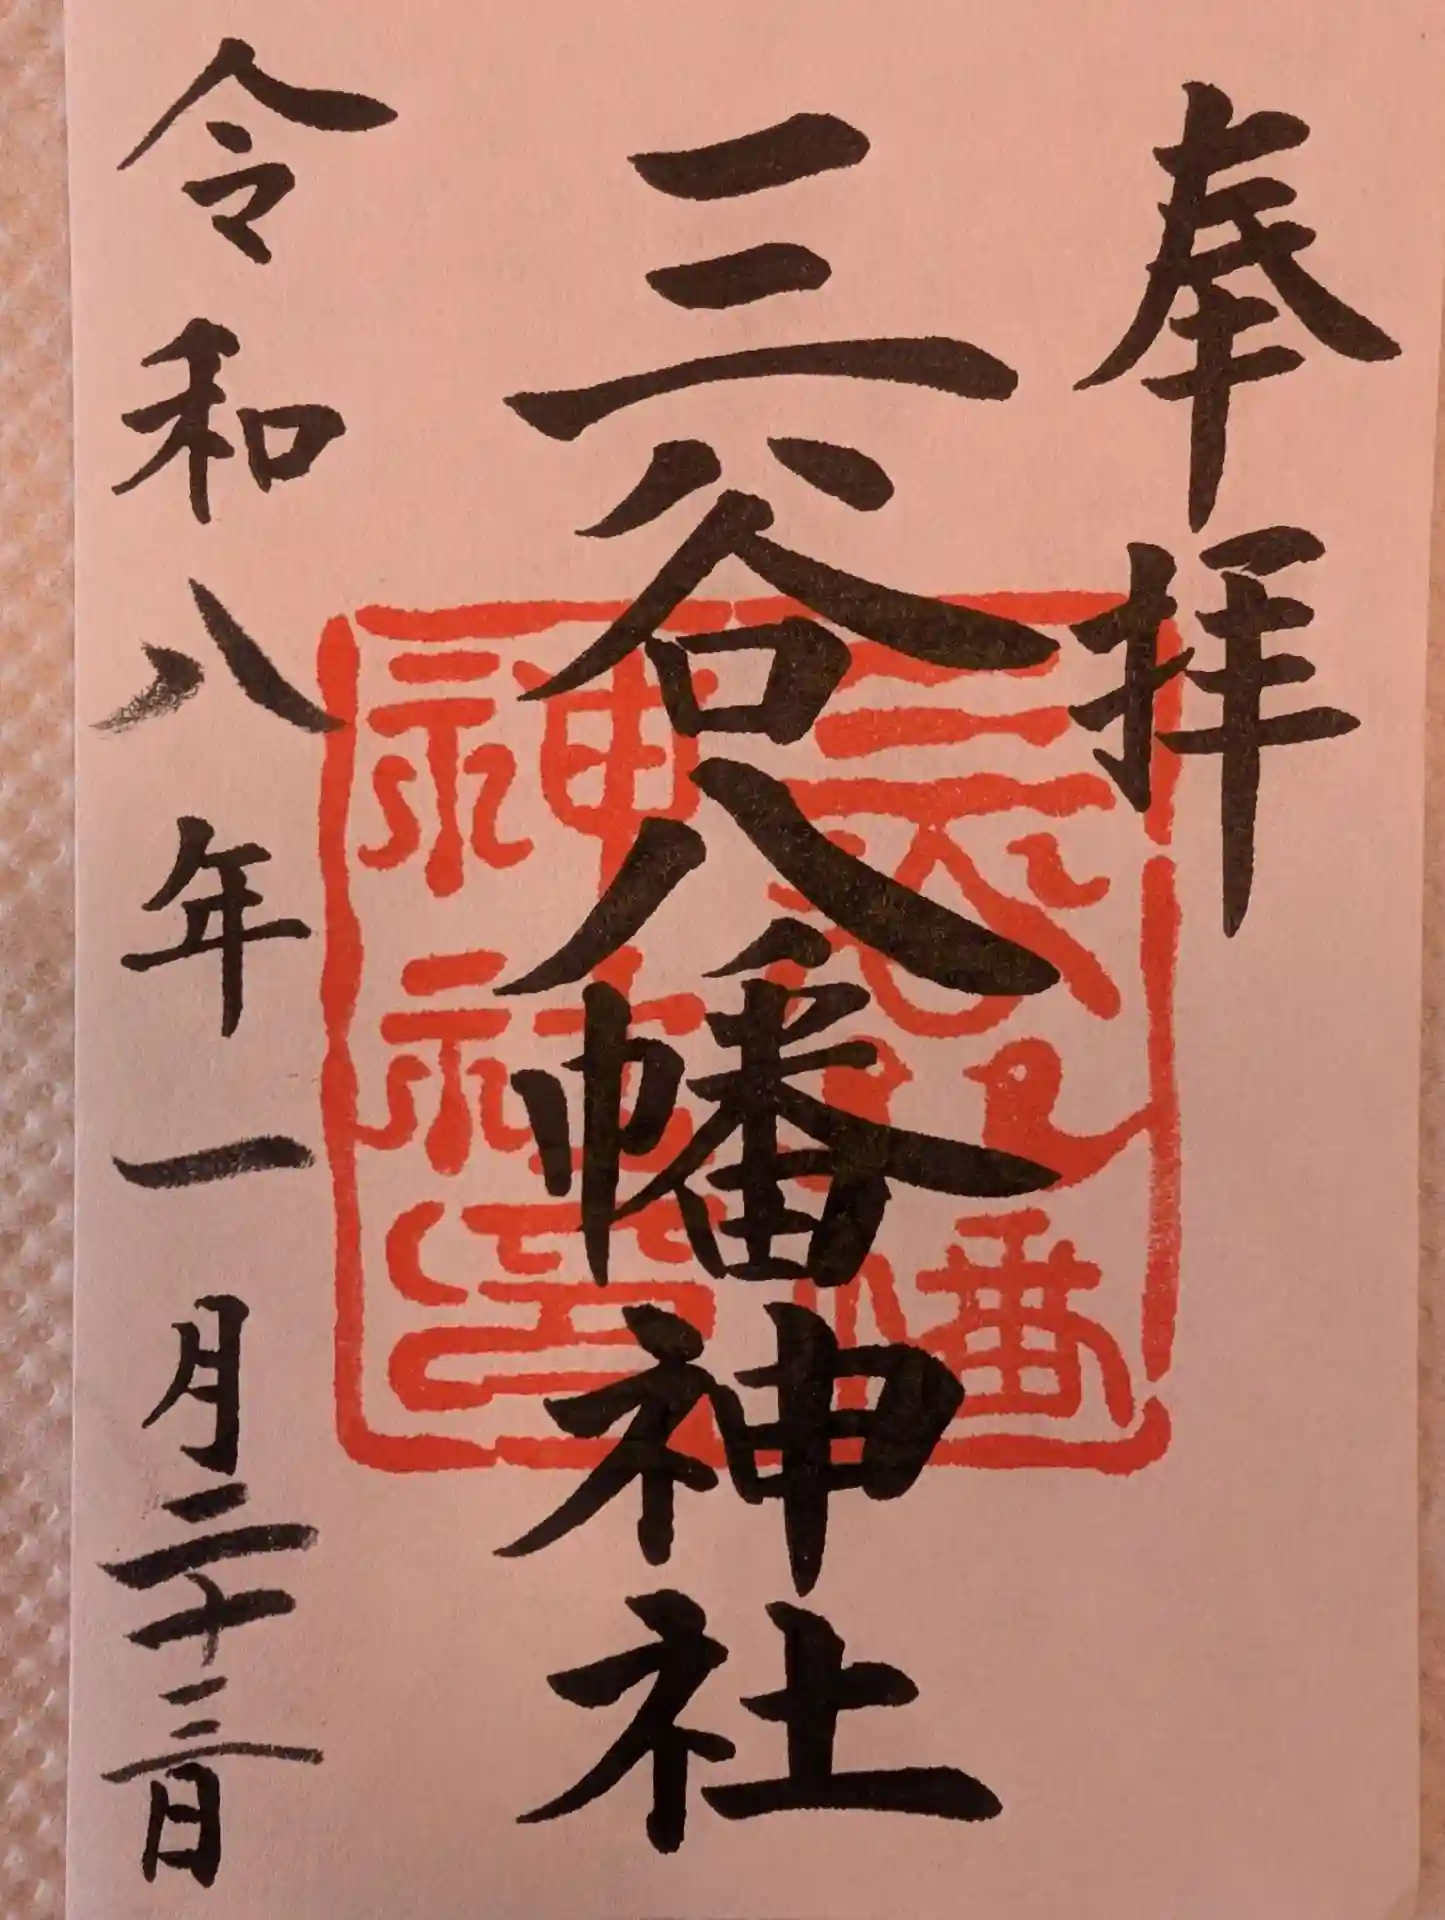 奉拝
三谷八幡神社
令和八年一月二十三日
三谷八幡
神社之印